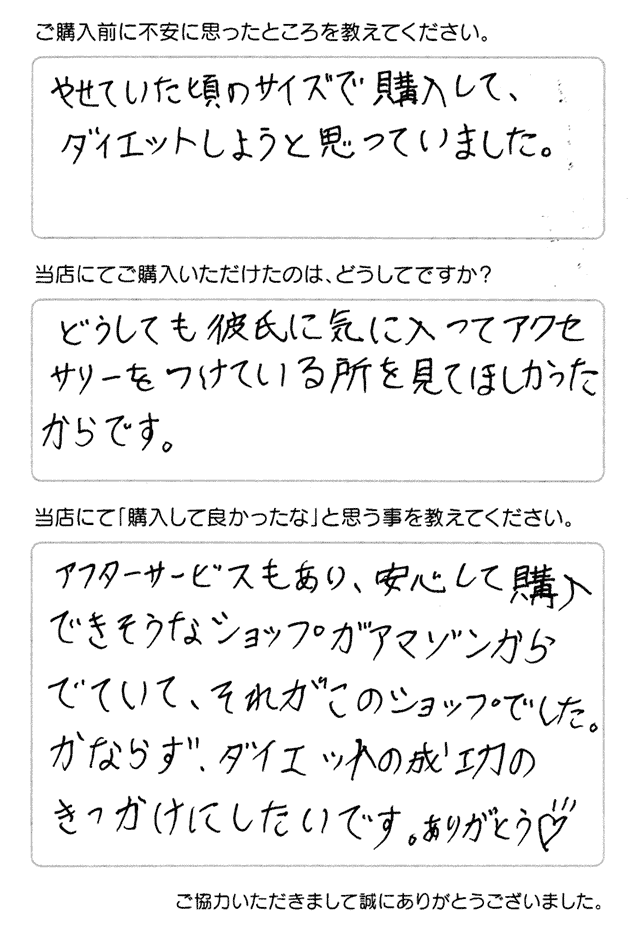 ご購入前に不安に思ったところを教えてください。
やせていた頃のサイズで購入して、
ダイエットしようと思っていました。
当店にてご購入いただけたのは、どうしてですか？
どうしても彼氏に気に入ってアクセ
サリーをつけている所を見てほしかった
からです。
当店にて「購入して良かったな」と思う事を教えてください。
アフターサービスもあり、安心して購入
できそうなショップがアマゾンから
でていて、それがこのショップでした。
かならず、ダイエットの成功の
きっかけにしたいです。ありがとう♡
ご協力いただきまして誠にありがとうございました。